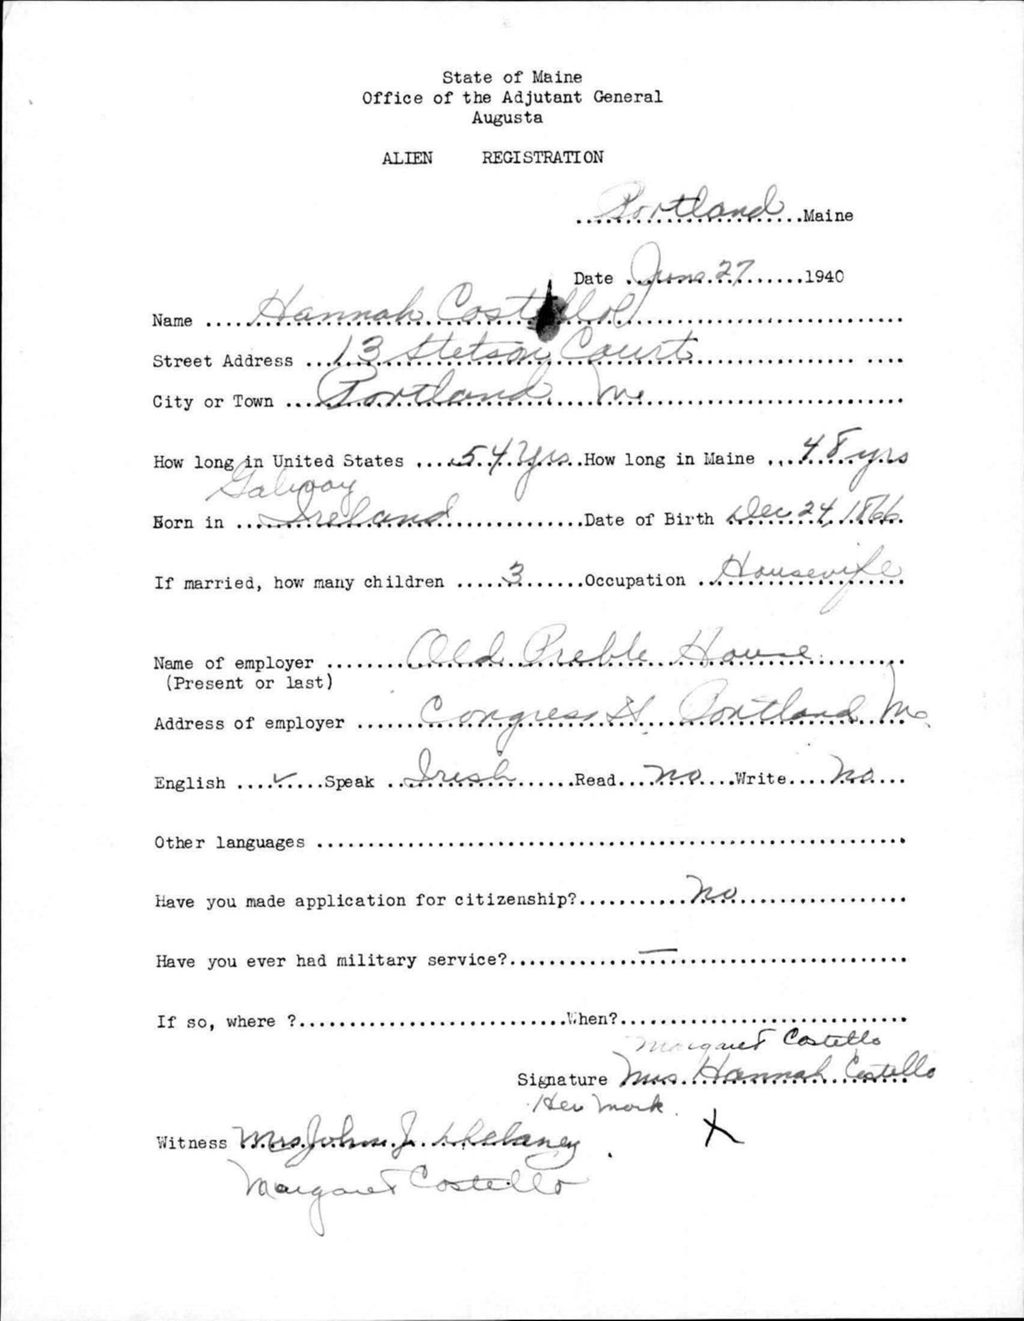 State of Maine
Office of the Adjutant General
Augusta
ALIEN REGISTRATION
Portland Maine
Date June 27 1940
Name Hannah Costello
Street Address 13 Stetson Court
City or Town Portland Me
How long in United States 54 yrs How long in Maine 48 yrs
Galway
Born in Ireland Date of Birth Dec 24, 1866
If married, how many children 3 Occupation Housewife
Name of employer Old Preble House
(Present or last)
Address of employer Congress St Portland Me
English ✓ Speak Irish Read no Write No
Other languages
Have you made application for citizenship? No
Have you ever had military service? —
If so, where ? When?
Margaret Costello
Signature Mrs. Hannah Costello
Her Mark X
Witness Mrs John J.
Margaret Costello